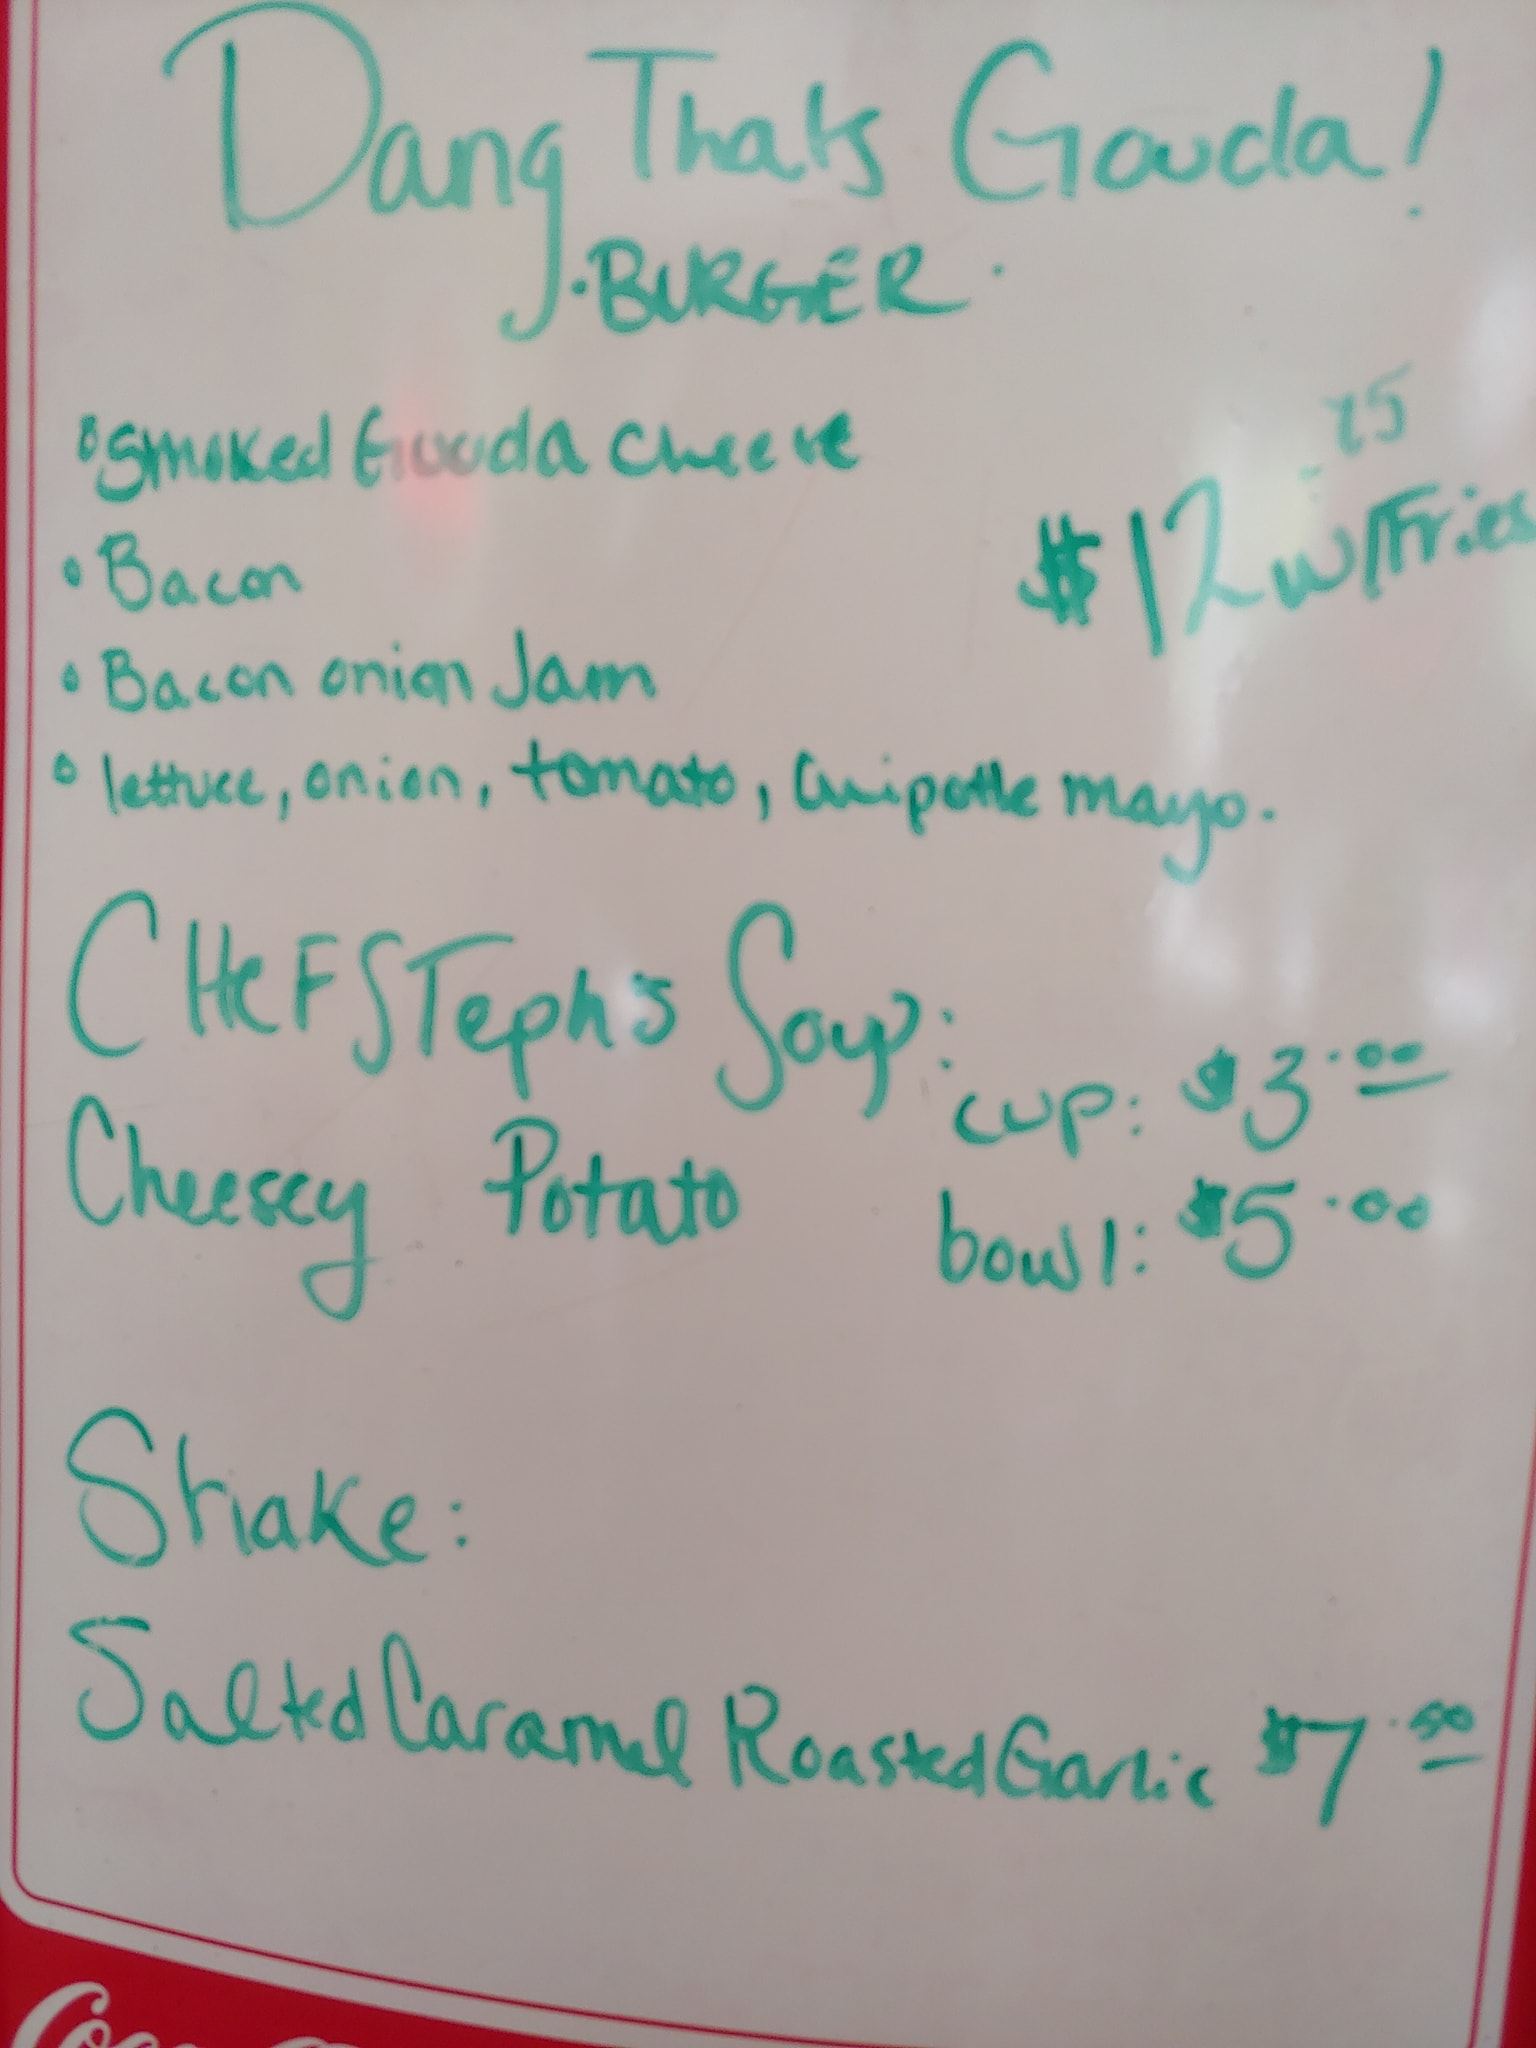 Dang Thats Gouda!
·BURGER·
• Smoked Gouda cheese
$12.75 w/Fries
• Bacon
• Bacon onion Jam
• lettuce, onion, tomato, Chipotle mayo.
CHeF STeph's Soup:
cup: $3.00
Cheesey Potato
bowl: $5.00
Shake:
Salted Caramel Roasted Garlic $7.50